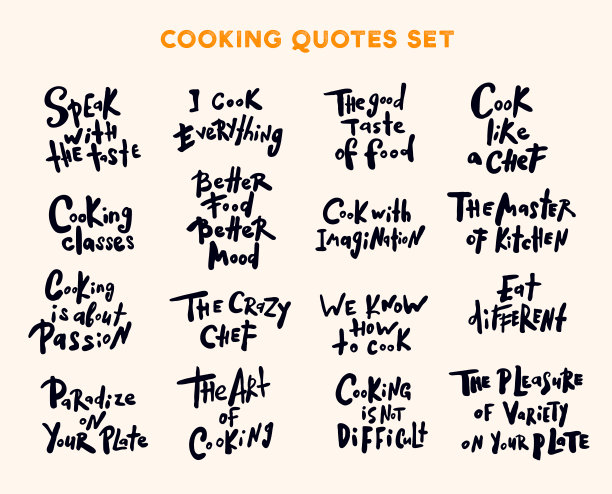 COOKING QUOTES SET
SPEAK
with
tHE taStE
I COOK
EvERYthing
THE good
Taste
of food
COOK
like
a CHEF
COOKing
classes
BetteR
Food
BetteR
Mood
COOK with
ImagiNatioN
THE MaSTER
OF KitCHEN
COOKing
is about
PassioN
THE CRaZY
CHEF
WE KNOW
HOW
to COOK
Eat
diffERENt
PaRadize
ON
YOUR PLate
THE ARt
OF
COOKiNg
COOKiNG
iS NOT
DiffiCuLt
THE PLEaSuRE
OF VaRiETY
ON YOUR PLATE